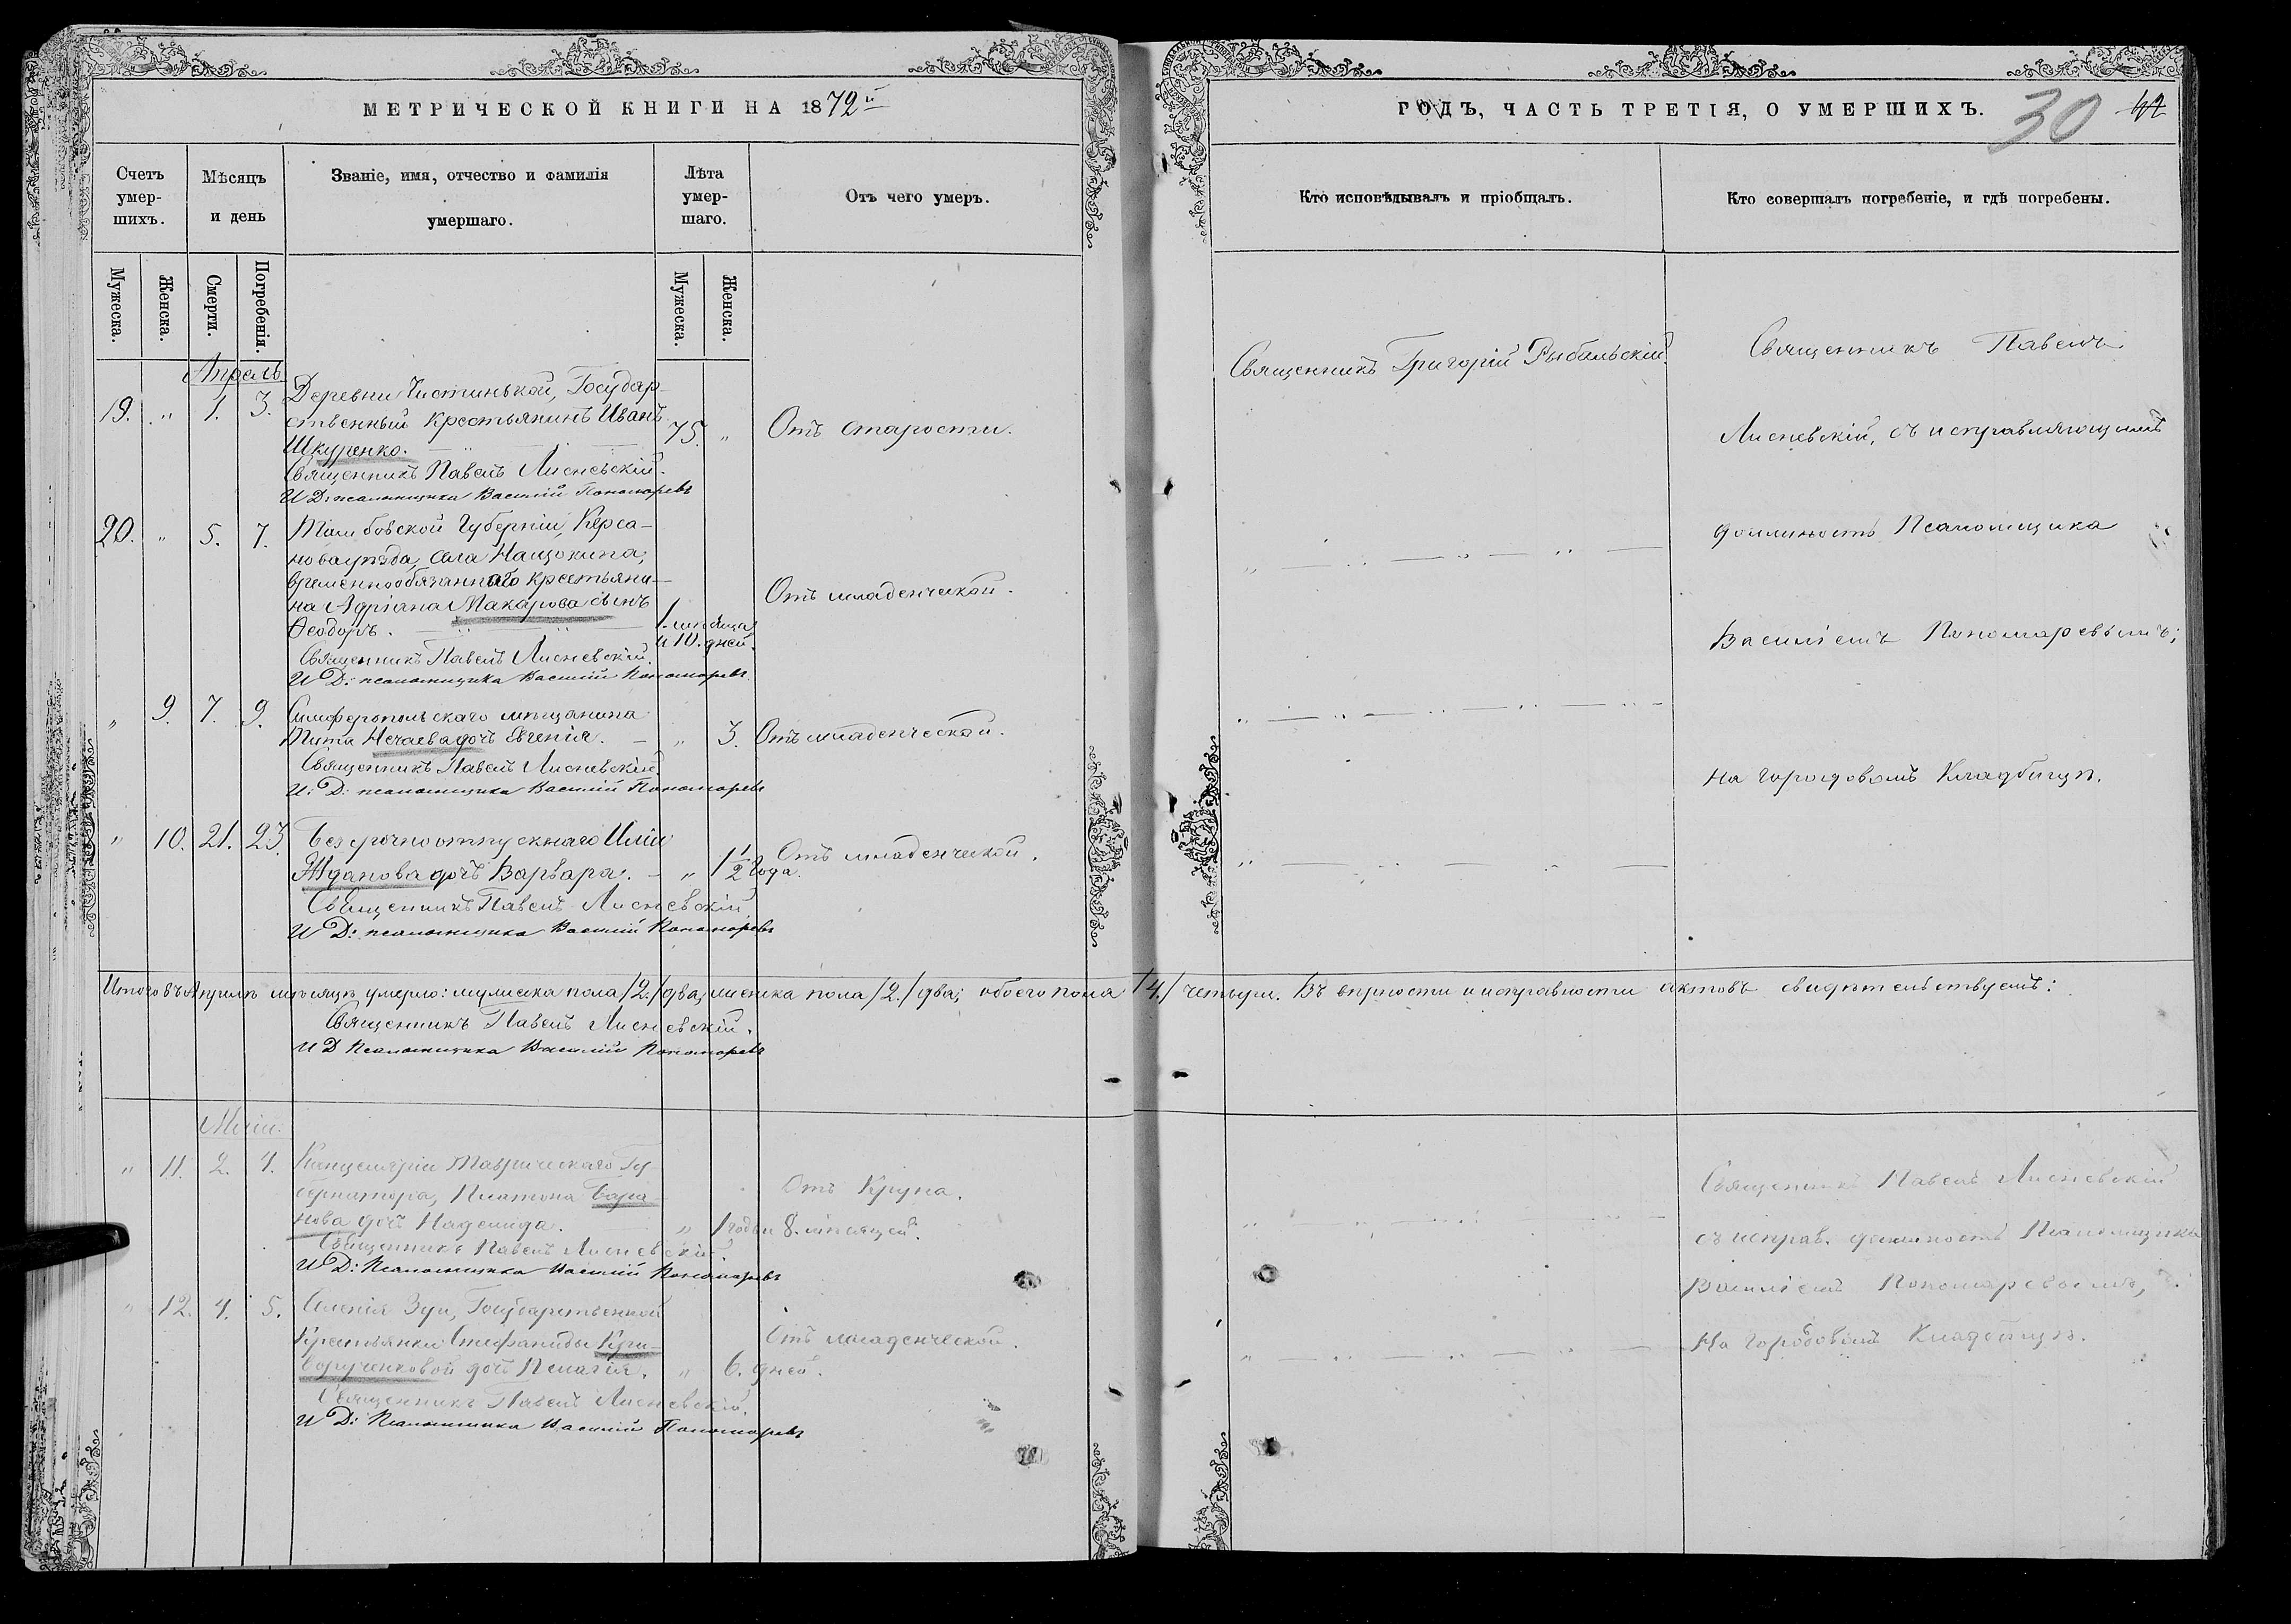 МЕТРИЧЕСКОЙ КНИГИ НА 1872й
ГОДЪ, ЧАСТЬ ТРЕТІЯ, О УМЕРШИХЪ.
30
Счетъ умер-шихъ.
Мѣсяцъ и день
Званіе, имя, отчество и фамилія умершаго.
Лѣта умер-шаго.
Отъ чего умеръ.
Кто исповѣдывалъ и пріобщалъ.
Кто совершалъ погребеніе, и гдѣ погребены.
Мужеска.
Женска.
Смерти.
Погребенія.
Мужеска.
Женска.
Апрель
19. „ 1. 3.
Деревни Чистинькой, Государ-
ственный крестьянинъ Иванъ
Шкуренко.
75. „
Отъ старости.
Священникъ Григорій Рыбальскій.
Священникъ Павелъ Лисневскій.
И Д: псаломщика Василій Пономаревъ
Священникъ Павелъ
Лисневскій, съ исправляющимъ
должность Псаломщика
Василіемъ Пономаревымъ;
на городовомъ Кладбищѣ.
20. „ 5. 7.
Тамбовской Губерніи, Керса-
нова уѣзда, села Нащокина,
временнообязаннаго крестьяни-
на Адріана Макарова сынъ
Ѳеодоръ.
1. мѣсяца
и 10. дней.
Отъ младенческой.
Священникъ Павелъ Лисневскій.
И Д: псаломщика Василій Пономаревъ
„ 9. 7. 9.
Симферопольскаго мѣщанина
Тита Нечаева дочь Евгенія.
„ 3.
Отъ младенческой.
Священникъ Павелъ Лисневскій
И: Д: псаломщика Василій Пономаревъ
„ 10. 21. 23.
Безсрочноотпускнаго Иліи
Жданова дочь Варвара.
„ 1 1/2 года.
Отъ младенческой.
Священникъ Павелъ Лисневскій
И Д: псаломщика Василій Пономаревъ
Итого въ Апрѣлѣ мѣсяцѣ умерло: мужеска пола /2./ два; женска пола /2./ два; обоего пола /4./ четыре. Въ вѣрности и исправности актовъ свидѣтельствуемъ:
Священникъ Павелъ Лисневскій.
И Д Псаломщика Василій Пономаревъ
Маій.
„ 11. 2. 4.
Канцеляріи Таврическаго Гу-
бернатора, Платона Бара-
нова дочь Надежда.
„ 1 годъ и 8. мѣсяцей.
Отъ Крупа.
Священникъ Павелъ Лисневскій.
И Д: Псаломщика Василій Пономаревъ
Священникъ Павелъ Лисневскій
съ исправ. должность Псаломщика
Василіемъ Пономаревымъ,
На городовомъ Кладбищѣ.
„ 12. 4. 5.
Селенія Зуи, Государственной
Крестьянки Стефаниды Кри-
ворученковой дочь Пелагія.
„ 6. дней.
Отъ младенческой.
Священникъ Павелъ Лисневскій.
И Д: Псаломщика Василій Пономаревъ